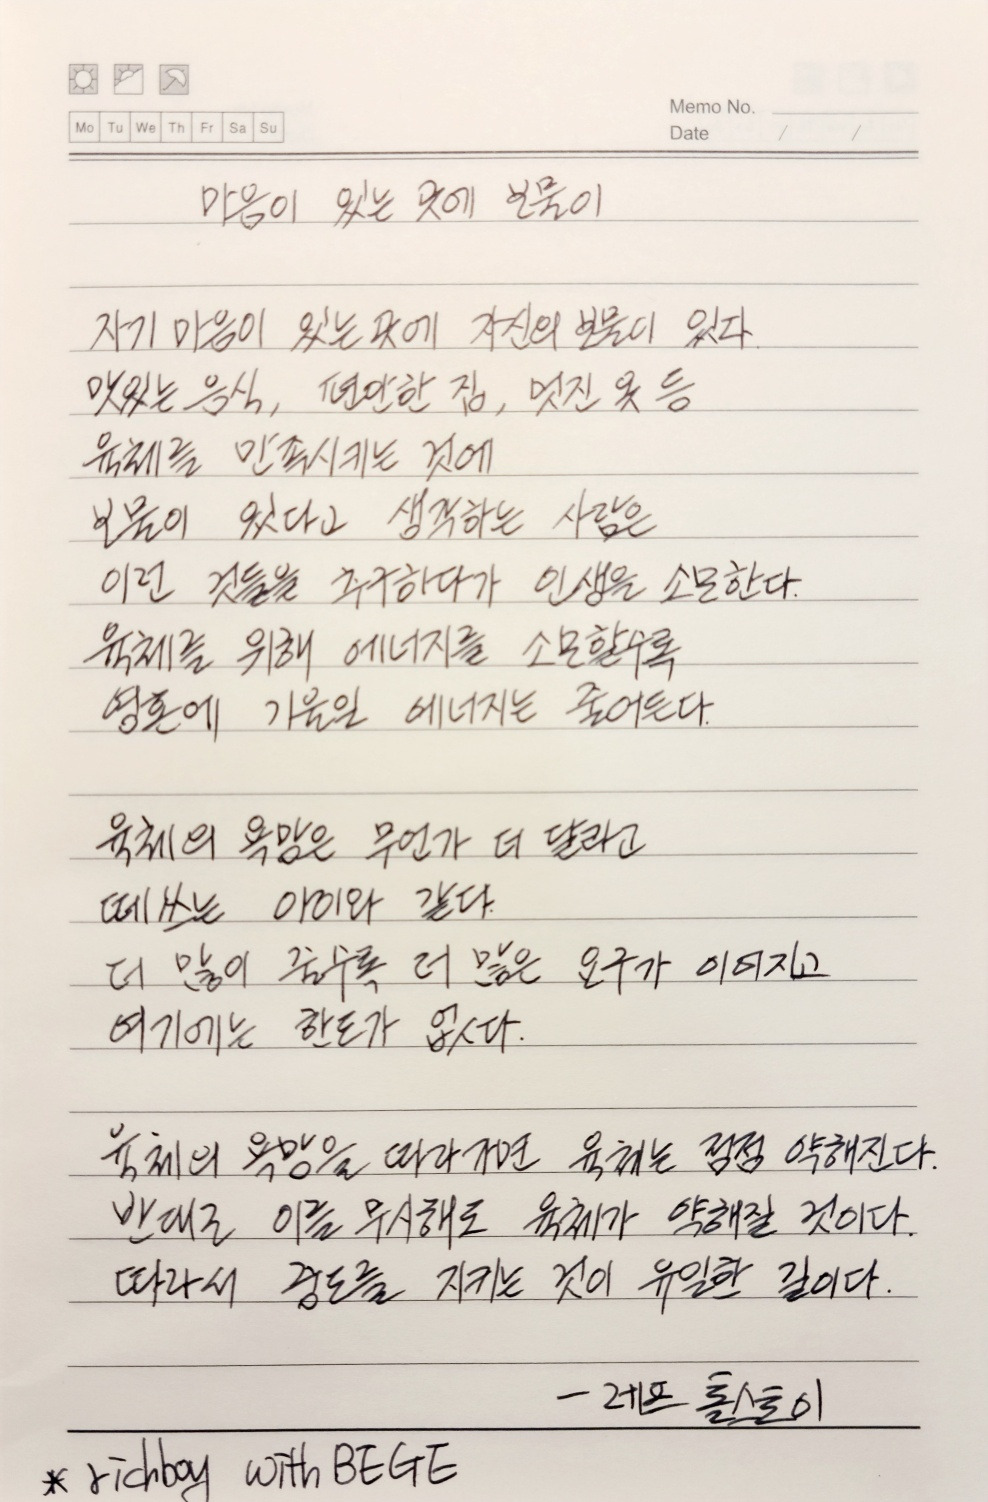 Mo Tu We Th Fr Sa Su
Memo No.
Date / /
마음이 있는 곳에 보물이
자기 마음이 있는 곳에 자신의 보물이 있다.
맛있는 음식, 편안한 집, 멋진 옷 등
육체를 만족시키는 것에
보물이 있다고 생각하는 사람은
이런 것들을 추구하다가 인생을 소모한다.
육체를 위해 에너지를 소모할수록
영혼에 기울일 에너지는 줄어든다.
육체의 욕망은 무언가 더 달라고
떼쓰는 아이와 같다.
더 많이 줄수록 더 많은 요구가 이어지고
여기에는 한도가 없다.
육체의 욕망을 따라가면 육체는 점점 약해진다.
반대로 이를 무시해도 육체가 약해질 것이다.
따라서 중도를 지키는 것이 유일한 길이다.
- 레프 톨스토이
* richboy with BEGE